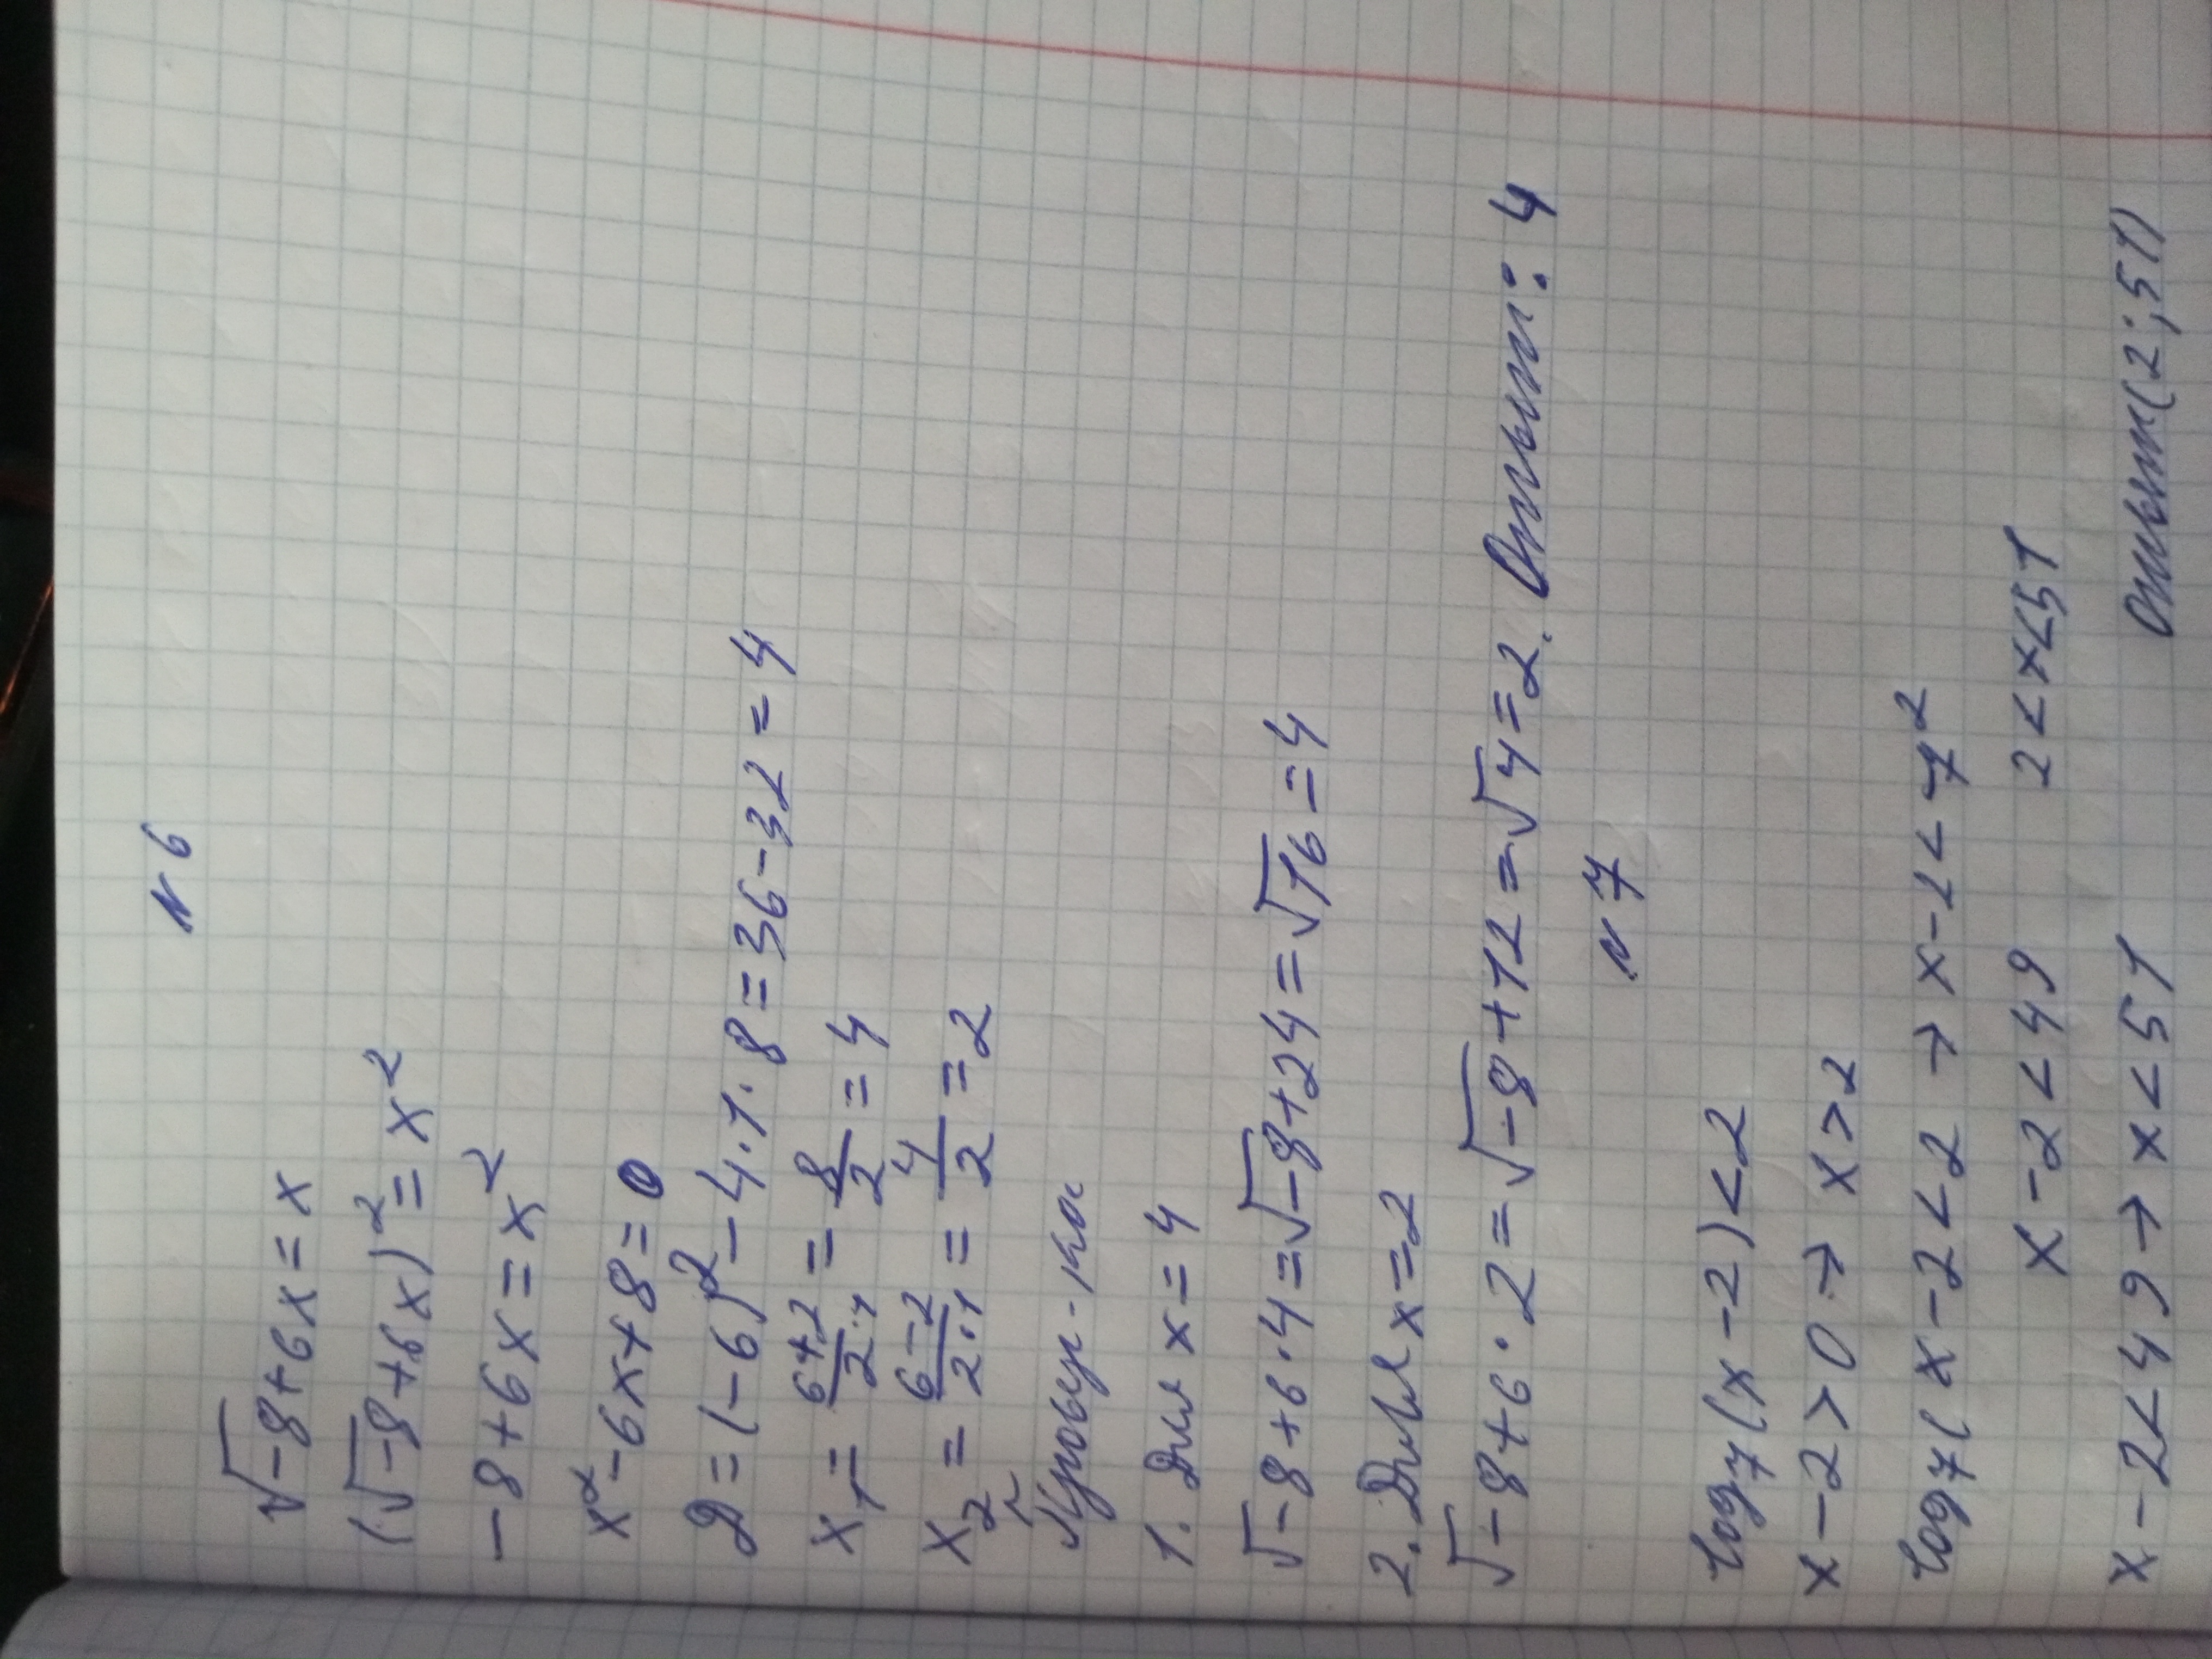 N 6
√-8+6x = x
(√-8+6x)² = x²
-8+6x = x²
x²-6x+8=0
D = (-6)² - 4·1·8 = 36-32 = 4
x₁ = (6+2)/(2·1) = 8/2 = 4
x₂ = (6-2)/(2·1) = 4/2 = 2
Провер-ка
1. Для x = 4
√-8+6·4 = √-8+24 = √16 = 4
2. Для x=2
√-8+6·2 = √-8+12 = √4 = 2. Ответ: 4
N 7
log₇(x-2)<2
x-2>0 → x>2
log₇(x-2<2 → x-2<7²
x-2<49 2<x<51
x-2<49 → x<51 Ответ(2;51)